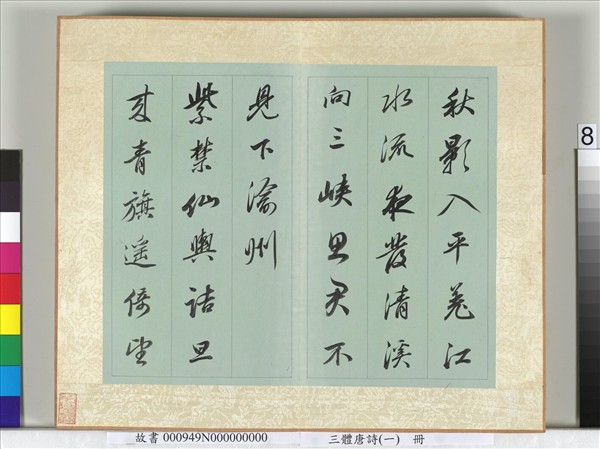 秋影入平羌江
水流夜發清溪
向三峽思君不
見下渝州
紫禁仙輿詰旦
来青旗遥倚望
故書 000949N000000000 三體唐詩(一) 冊
8